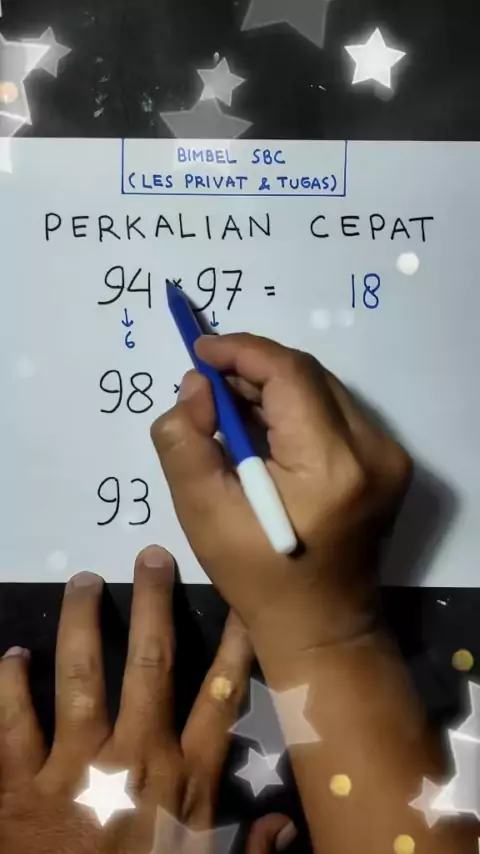 BIMBEL SBC
(LES PRIVAT & TUGAS)
PERKALIAN CEPAT
94 × 97 = 18
↓ ↓
6
98 ×
93